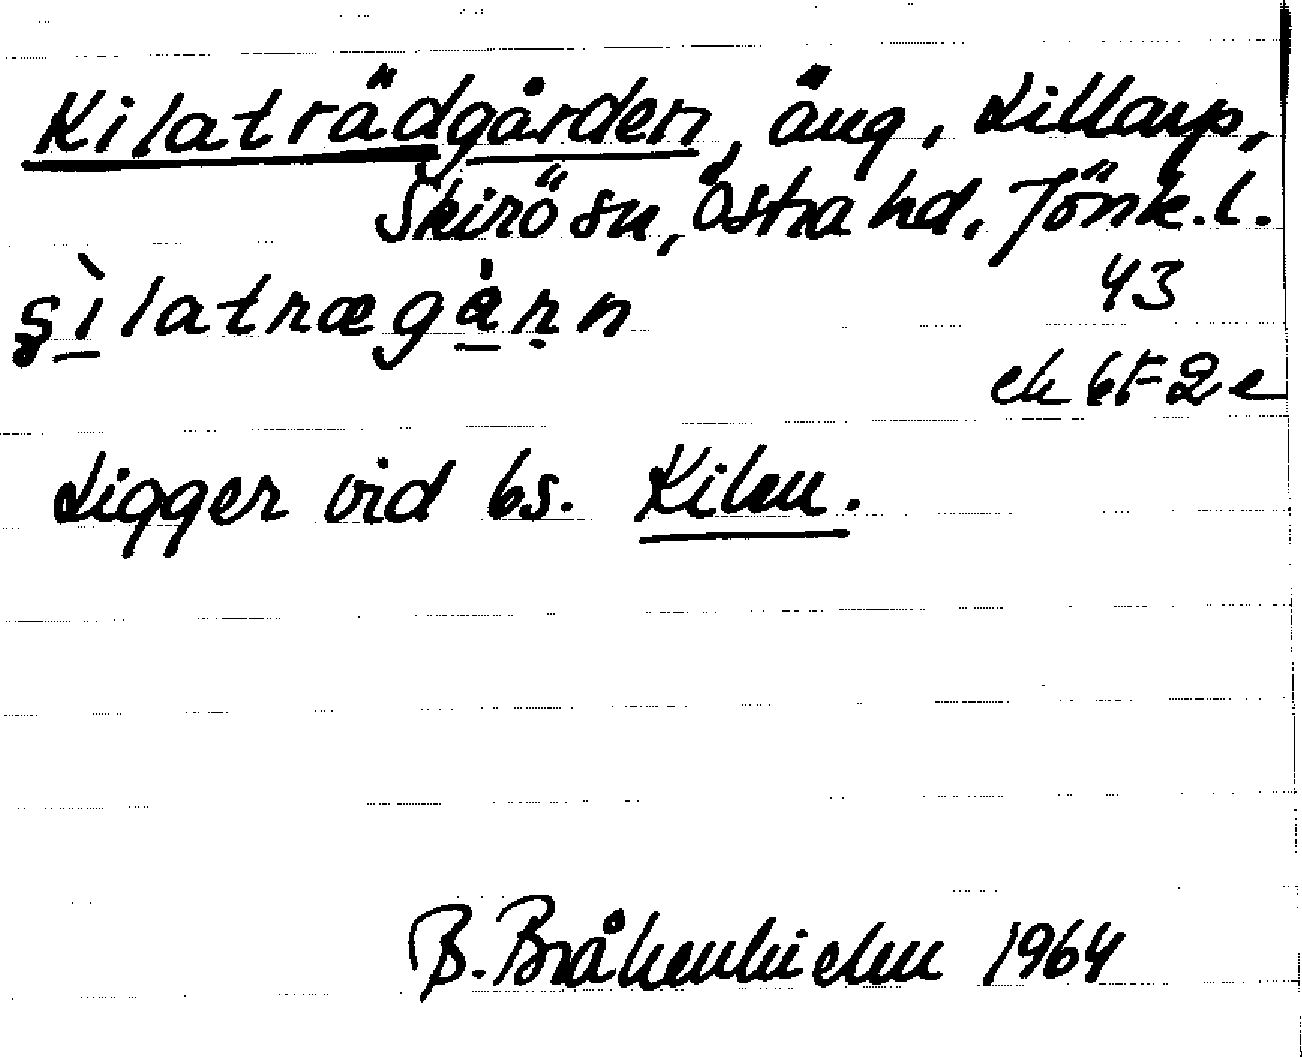 Kilaträdgården, äng, Lillarp,
Skirö sn, Östra hd, Jönk. l.
ʂìlatrægàṛn
43
ek 6F2e
Ligger vid bs. Kilen.
B. Bråkenhielm 1964